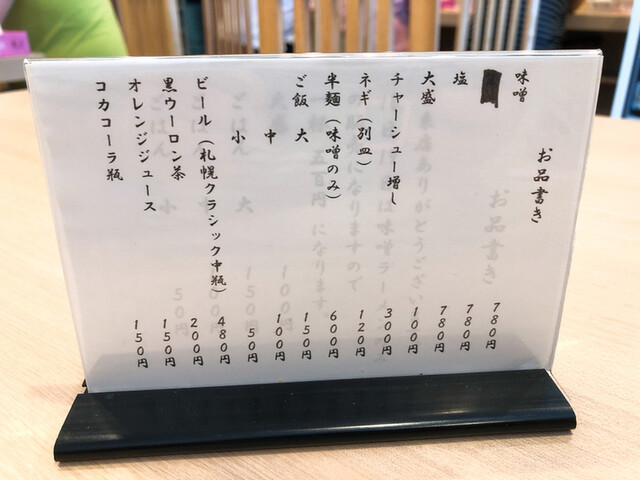 お品書き
味噌 780円
780円
塩 780円
大盛 100円
チャーシュー増し 300円
ネギ(別皿) 120円
半麺(味噌のみ) 600円
ご飯 大 150円
中 100円
小 50円
ビール(札幌クラシック中瓶) 480円
黒ウーロン茶 200円
オレンジジュース 150円
コカコーラ瓶 150円